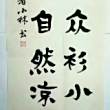 众衫小
自然凉
小林书